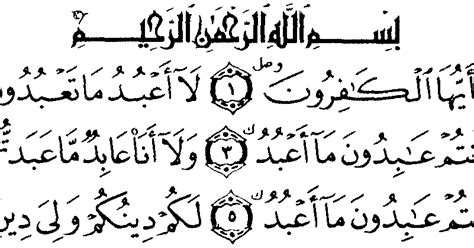 بِسْمِ اللَّهِ الرَّحْمَٰنِ الرَّحِيمِ
أَيُّهَا الْكَٰفِرُونَ ﴿١﴾ لَا أَعْبُدُ مَا تَعْبُدُونَ
نتُمْ عَٰبِدُونَ مَا أَعْبُدُ ﴿٣﴾ وَلَا أَنَا۠ عَابِدٌ مَّا عَبَدتُّ
تُمْ عَٰبِدُونَ مَا أَعْبُدُ ﴿٥﴾ لَكُمْ دِينُكُمْ وَلِىَ دِينِ